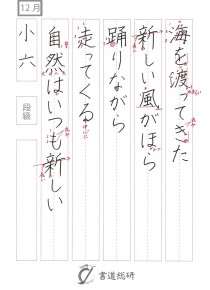 12月
小六
段級
海を渡ってきた
新しい風がほら
踊りながら
走ってくる
自然はいつも新しい
書道総研